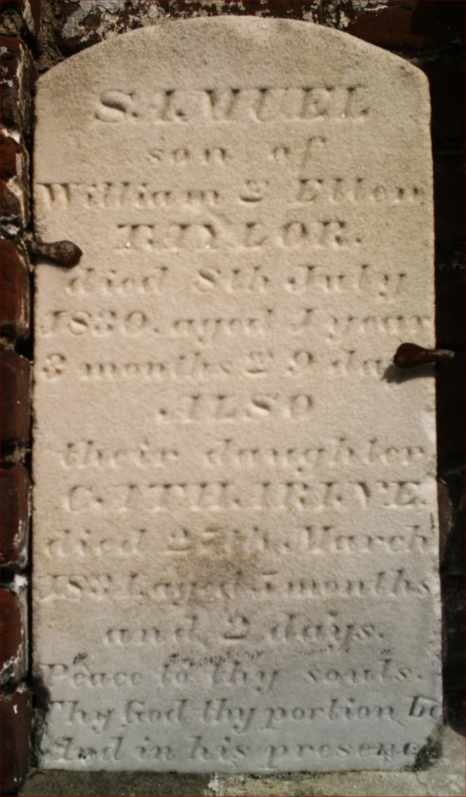 SAMUEL
son of
William & Ellen
TAYLOR.
died 8th July
1830. aged 1 year
3 months & 9 days
ALSO
their daughter
CATHARINE
died 27th March
aged months
and 2 days.
Peace to thy souls.
Thy God thy portion be
And in his presence